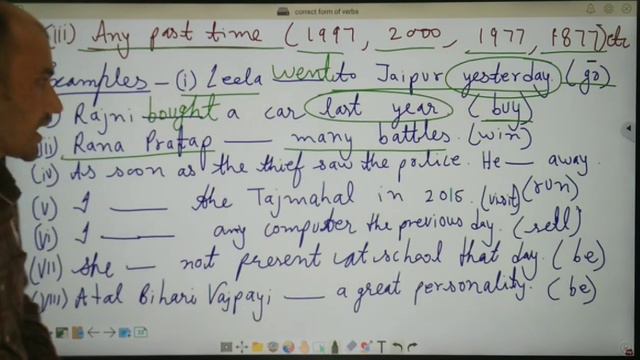 correct form of verbs
(iii) Any past time (1997, 2000, 1977, 1877) etc
Examples - (i) Leela went to Jaipur yesterday. (go)
) Rajni bought a car last year (buy)
iii) Rana Pratap ___ many battles. (win)
(iv) As soon as the thief saw the police. He ___ away.
(v) I ___ the Tajmahal in 2015. (visit) (run)
(vi) I ___ any computer the previous day. (sell)
(vii) She ___ not present at school that day. (be)
(viii) Atal Bihari Vajpayi ___ a great personality. (be)